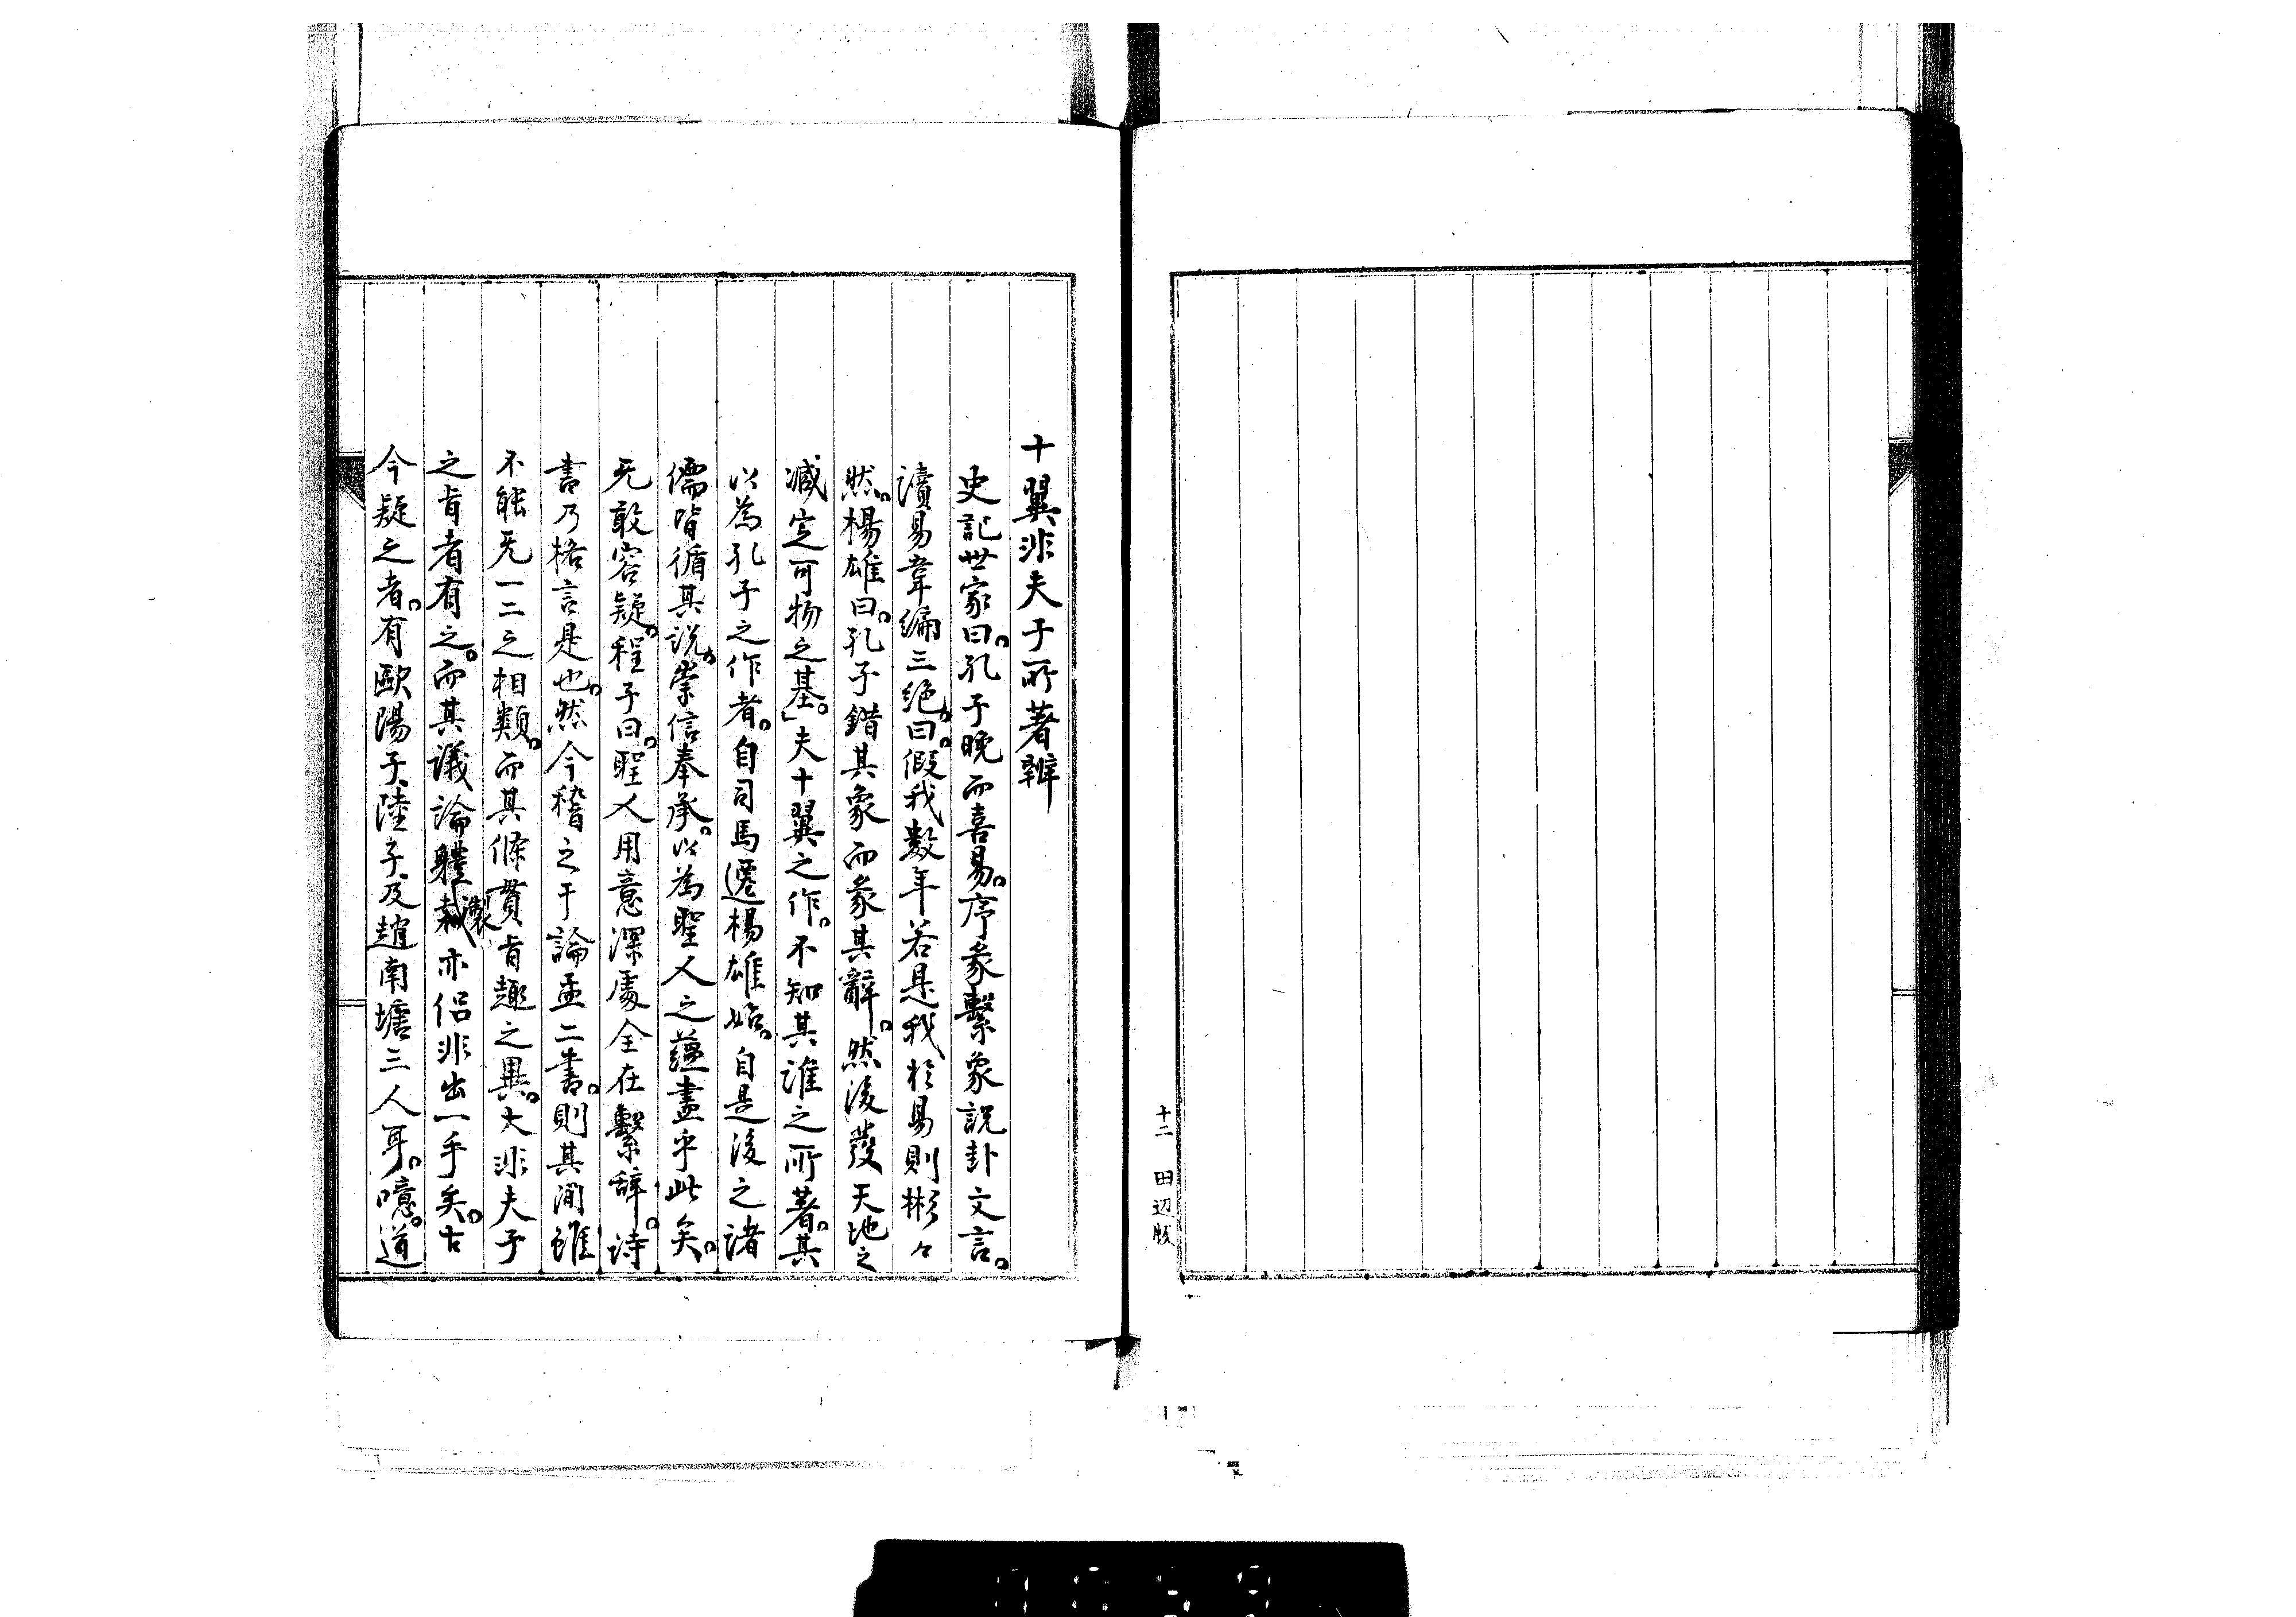 十二　田辺版
十翼非夫子所著辨
史記世家曰。孔子晚而喜易。序彖繫象說卦文言。
讀易韋編三絶。曰。假我數年若是我於易則彬々
然。楊雄曰。孔子錯其象而彖其辭。然後發天地之
滅定可物之基。」夫十翼之作。不知其誰之所著。其
以為孔子之作者。自司馬遷楊雄始。自是後之諸
儒皆循其説。崇信奉承。以為聖人之蘊盡乎此矣。
无敢容疑。程子曰。聖人用意深處全在繫辭。詩
書乃格言是也。然今稽之于論孟二書。則其間雖
不能无一二之相類。而其條貫旨趣之異。大非夫子
之旨者有之。而其議論體裁製亦似非出一手矣。古
今疑之者。有歐陽子、陸子、及趙南塘三人耳。噫。道